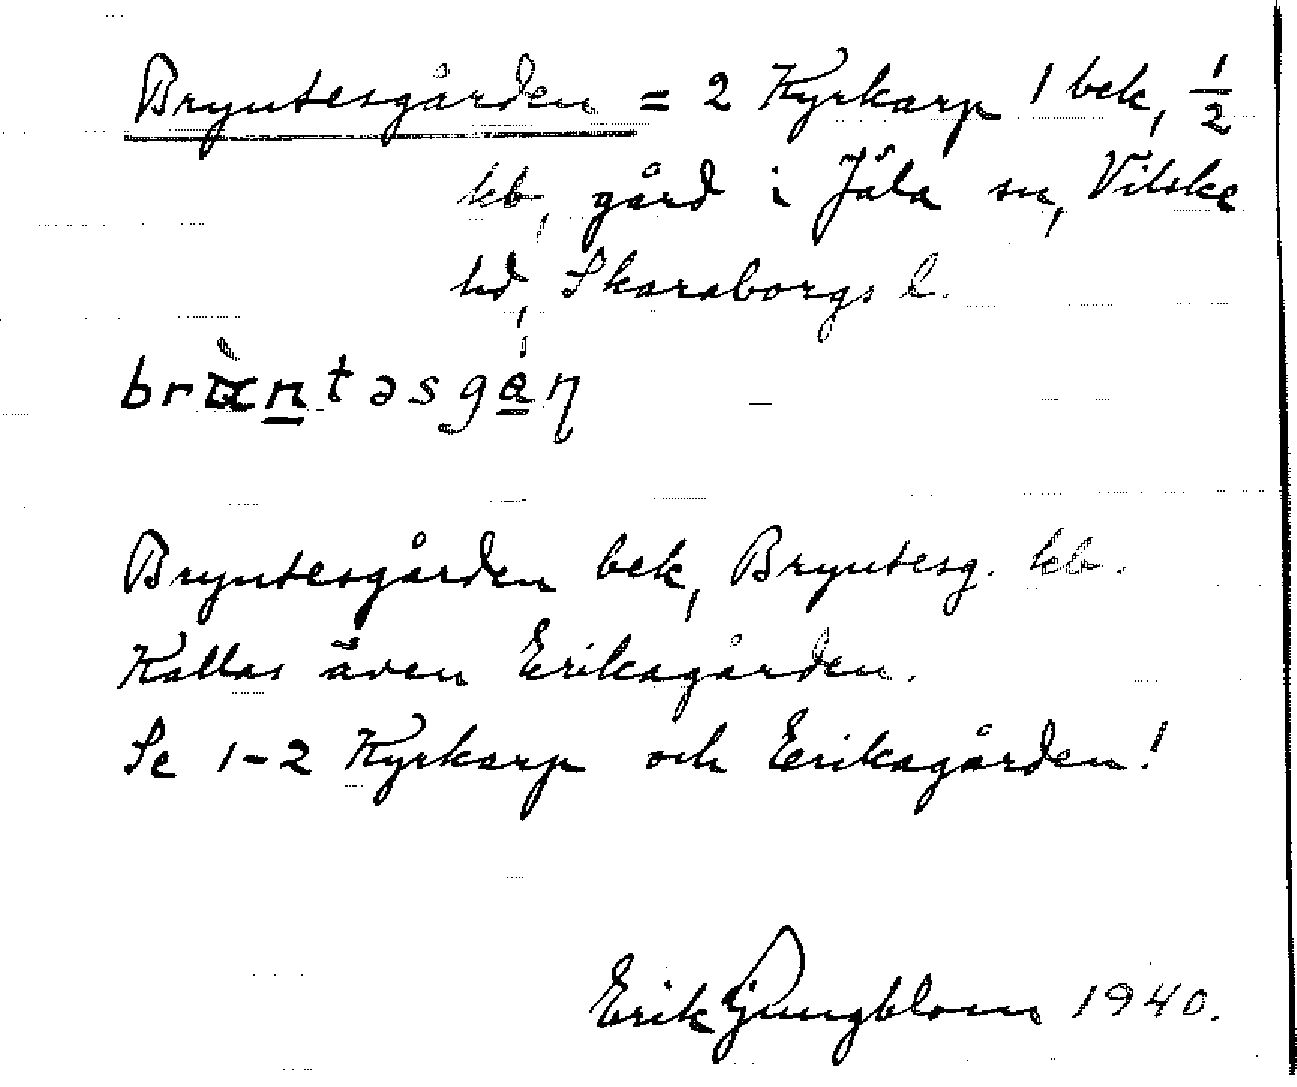 Bryntesgården = 2 Kyrkarp 1 bek, 1/2
kb, gård i Jäla sn, Vilske
hd, Skaraborgs l.
Bryntesgården bek, Bryntesg. kb.
Kallas även Eriksgården.
Se 1-2 Kyrkarp och Eriksgården!
Erik Ljungblom 1940.